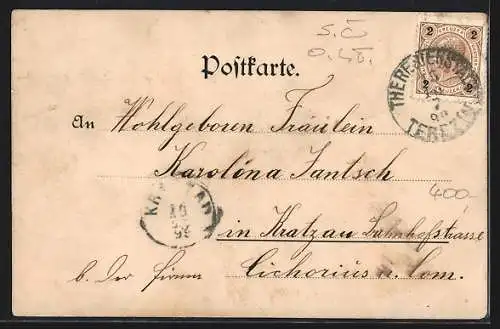 S.Č
O.LT.
Postkarte.
2 2
2 2
THERESIENSTADT
TEREZÍN
An Wohlgeboren Fräulein
Karolína Jantsch
400-
KRATZAU
in Kratzau Bahnhofstrasse
b. der Firma Cichorius u. Com.